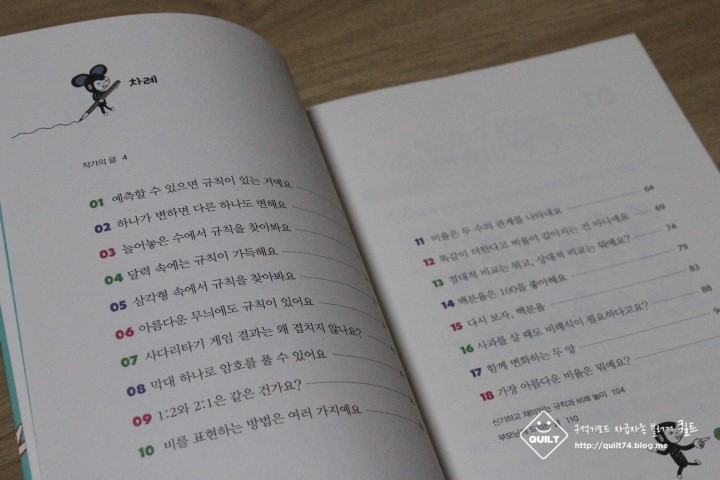 차례
작가의 글 4
01 예측할 수 있으면 규칙이 있는 거예요
02 하나가 변하면 다른 하나도 변해요
03 늘어놓은 수에서 규칙을 찾아봐요
04 달력 속에는 규칙이 가득해요
05 삼각형 속에서 규칙을 찾아봐요
06 아름다운 무늬에도 규칙이 있어요
07 사다리타기 게임 결과는 왜 겹치지 않나요?
08 막대 하나로 암호를 풀 수 있어요
09 1:2와 2:1은 같은 건가요?
10 비를 표현하는 방법은 여러 가지예요
11 비율은 두 수의 관계를 나타내요 64
12 똑같이 더한다고 비율이 같아지는 건 아니에요 69
13 절대적 비교는 뭐고, 상대적 비교는 뭐예요? 74
14 백분율은 100을 좋아해요 79
15 다시 보자, 백분율 83
16 사과를 살 때도 비례식이 필요하다고요? 88
17 함께 변화하는 두 양
18 가장 아름다운 비율은 뭐예요?
신기하고 재미있는 규칙과 비례 놀이 104
부모님께 110
QUILT
구석기모드 자급자족 블로거 퀼트
http://quilt74.blog.me